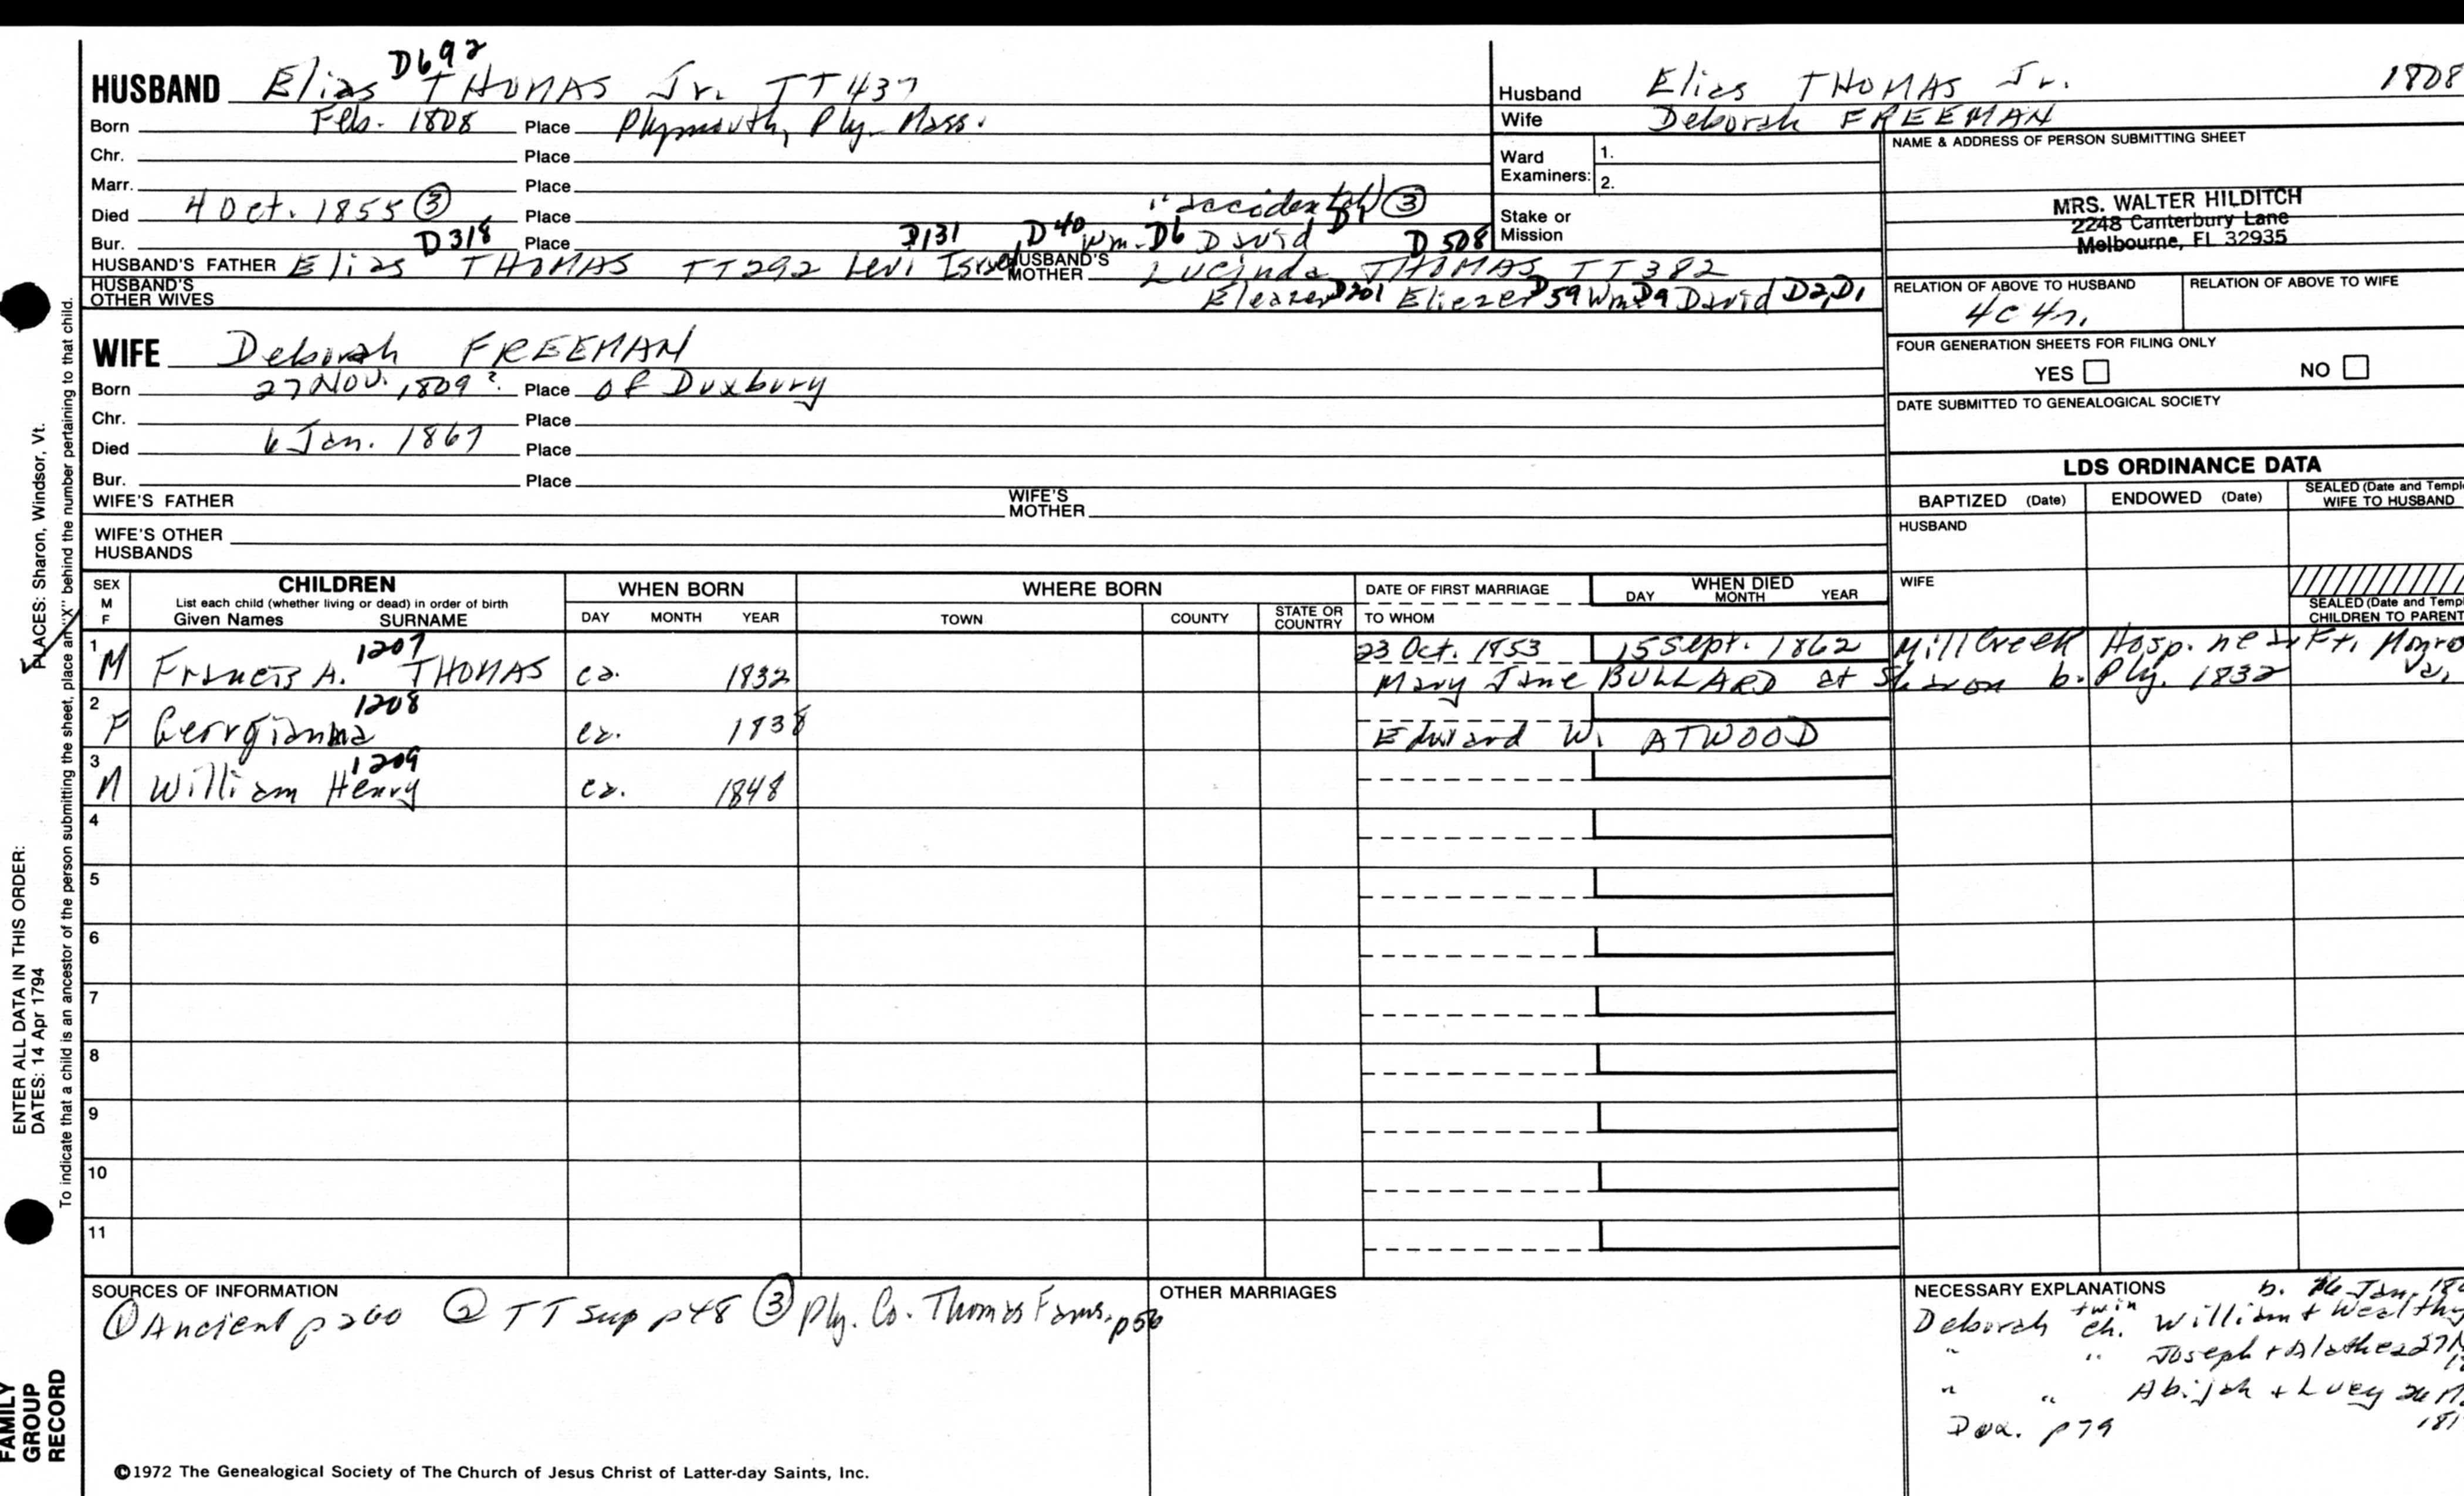 D692
HUSBAND Elias THOMAS Jr. TT437
Born Feb. 1808 Place Plymouth, Ply. Mass.
Chr. Place
Marr. Place
Died 4 Oct. 1855 ③ Place "accidental" ③
Bur. Place
D318 D131 D40 Wm. D6 David D1 D508
HUSBAND'S FATHER Elias THOMAS TT292 Levi Israel HUSBAND'S MOTHER Lucinda THOMAS TT382
HUSBAND'S OTHER WIVES Eleazer D201 Eliezer D59 Wm D9 David D2, D1
Husband Elias THOMAS Jr. 1808
Wife Deborah FREEMAN
Ward Examiners: 1.
2.
Stake or Mission
NAME & ADDRESS OF PERSON SUBMITTING SHEET
MRS. WALTER HILDITCH
2248 Canterbury Lane
Melbourne, FL 32935
RELATION OF ABOVE TO HUSBAND RELATION OF ABOVE TO WIFE
4c 4r.
FOUR GENERATION SHEETS FOR FILING ONLY
YES NO
DATE SUBMITTED TO GENEALOGICAL SOCIETY
WIFE Deborah FREEMAN
Born 27 Nov. 1809? Place of Duxbury
Chr. Place
Died 6 Jan. 1867 Place
Bur. Place
WIFE'S FATHER WIFE'S MOTHER
WIFE'S OTHER HUSBANDS
LDS ORDINANCE DATA
BAPTIZED (Date) ENDOWED (Date) SEALED (Date and Temple
WIFE TO HUSBAND
HUSBAND
WIFE
SEALED (Date and Templ
CHILDREN TO PARENT
SEX M F
CHILDREN
List each child (whether living or dead) in order of birth
Given Names SURNAME
WHEN BORN
DAY MONTH YEAR
WHERE BORN
TOWN COUNTY STATE OR COUNTRY
DATE OF FIRST MARRIAGE
TO WHOM
WHEN DIED
DAY MONTH YEAR
1 1207 23 Oct. 1853 15 Sept. 1862 Mill Creek Hosp. near Ft. Monro
M Francis A. THOMAS ca. 1832 Mary Jane BULLARD at Sharon b. Ply. 1832 Va.
2 1208
F Georgianna ca. 1838 Edward W. ATWOOD
3 1209
M William Henry ca. 1848
4
5
6
7
8
9
10
11
SOURCES OF INFORMATION
① Ancient p 260 ② TT sup p48 ③ Ply. Co. Thomas Fams. p56
OTHER MARRIAGES
NECESSARY EXPLANATIONS b. Jan. 18
Deborah twin ch. William + Wealthy
" " Joseph + 27 N
" " Abijah + Lucy 26 M
Dux. p79 181
©1972 The Genealogical Society of The Church of Jesus Christ of Latter-day Saints, Inc.
PLACES: Sharon, Windsor, Vt.
ENTER ALL DATA IN THIS ORDER:
DATES: 14 Apr 1794
To indicate that a child is an ancestor of the person submitting the sheet, place an "X" behind the number pertaining to that child.
FAMILY
GROUP
RECORD